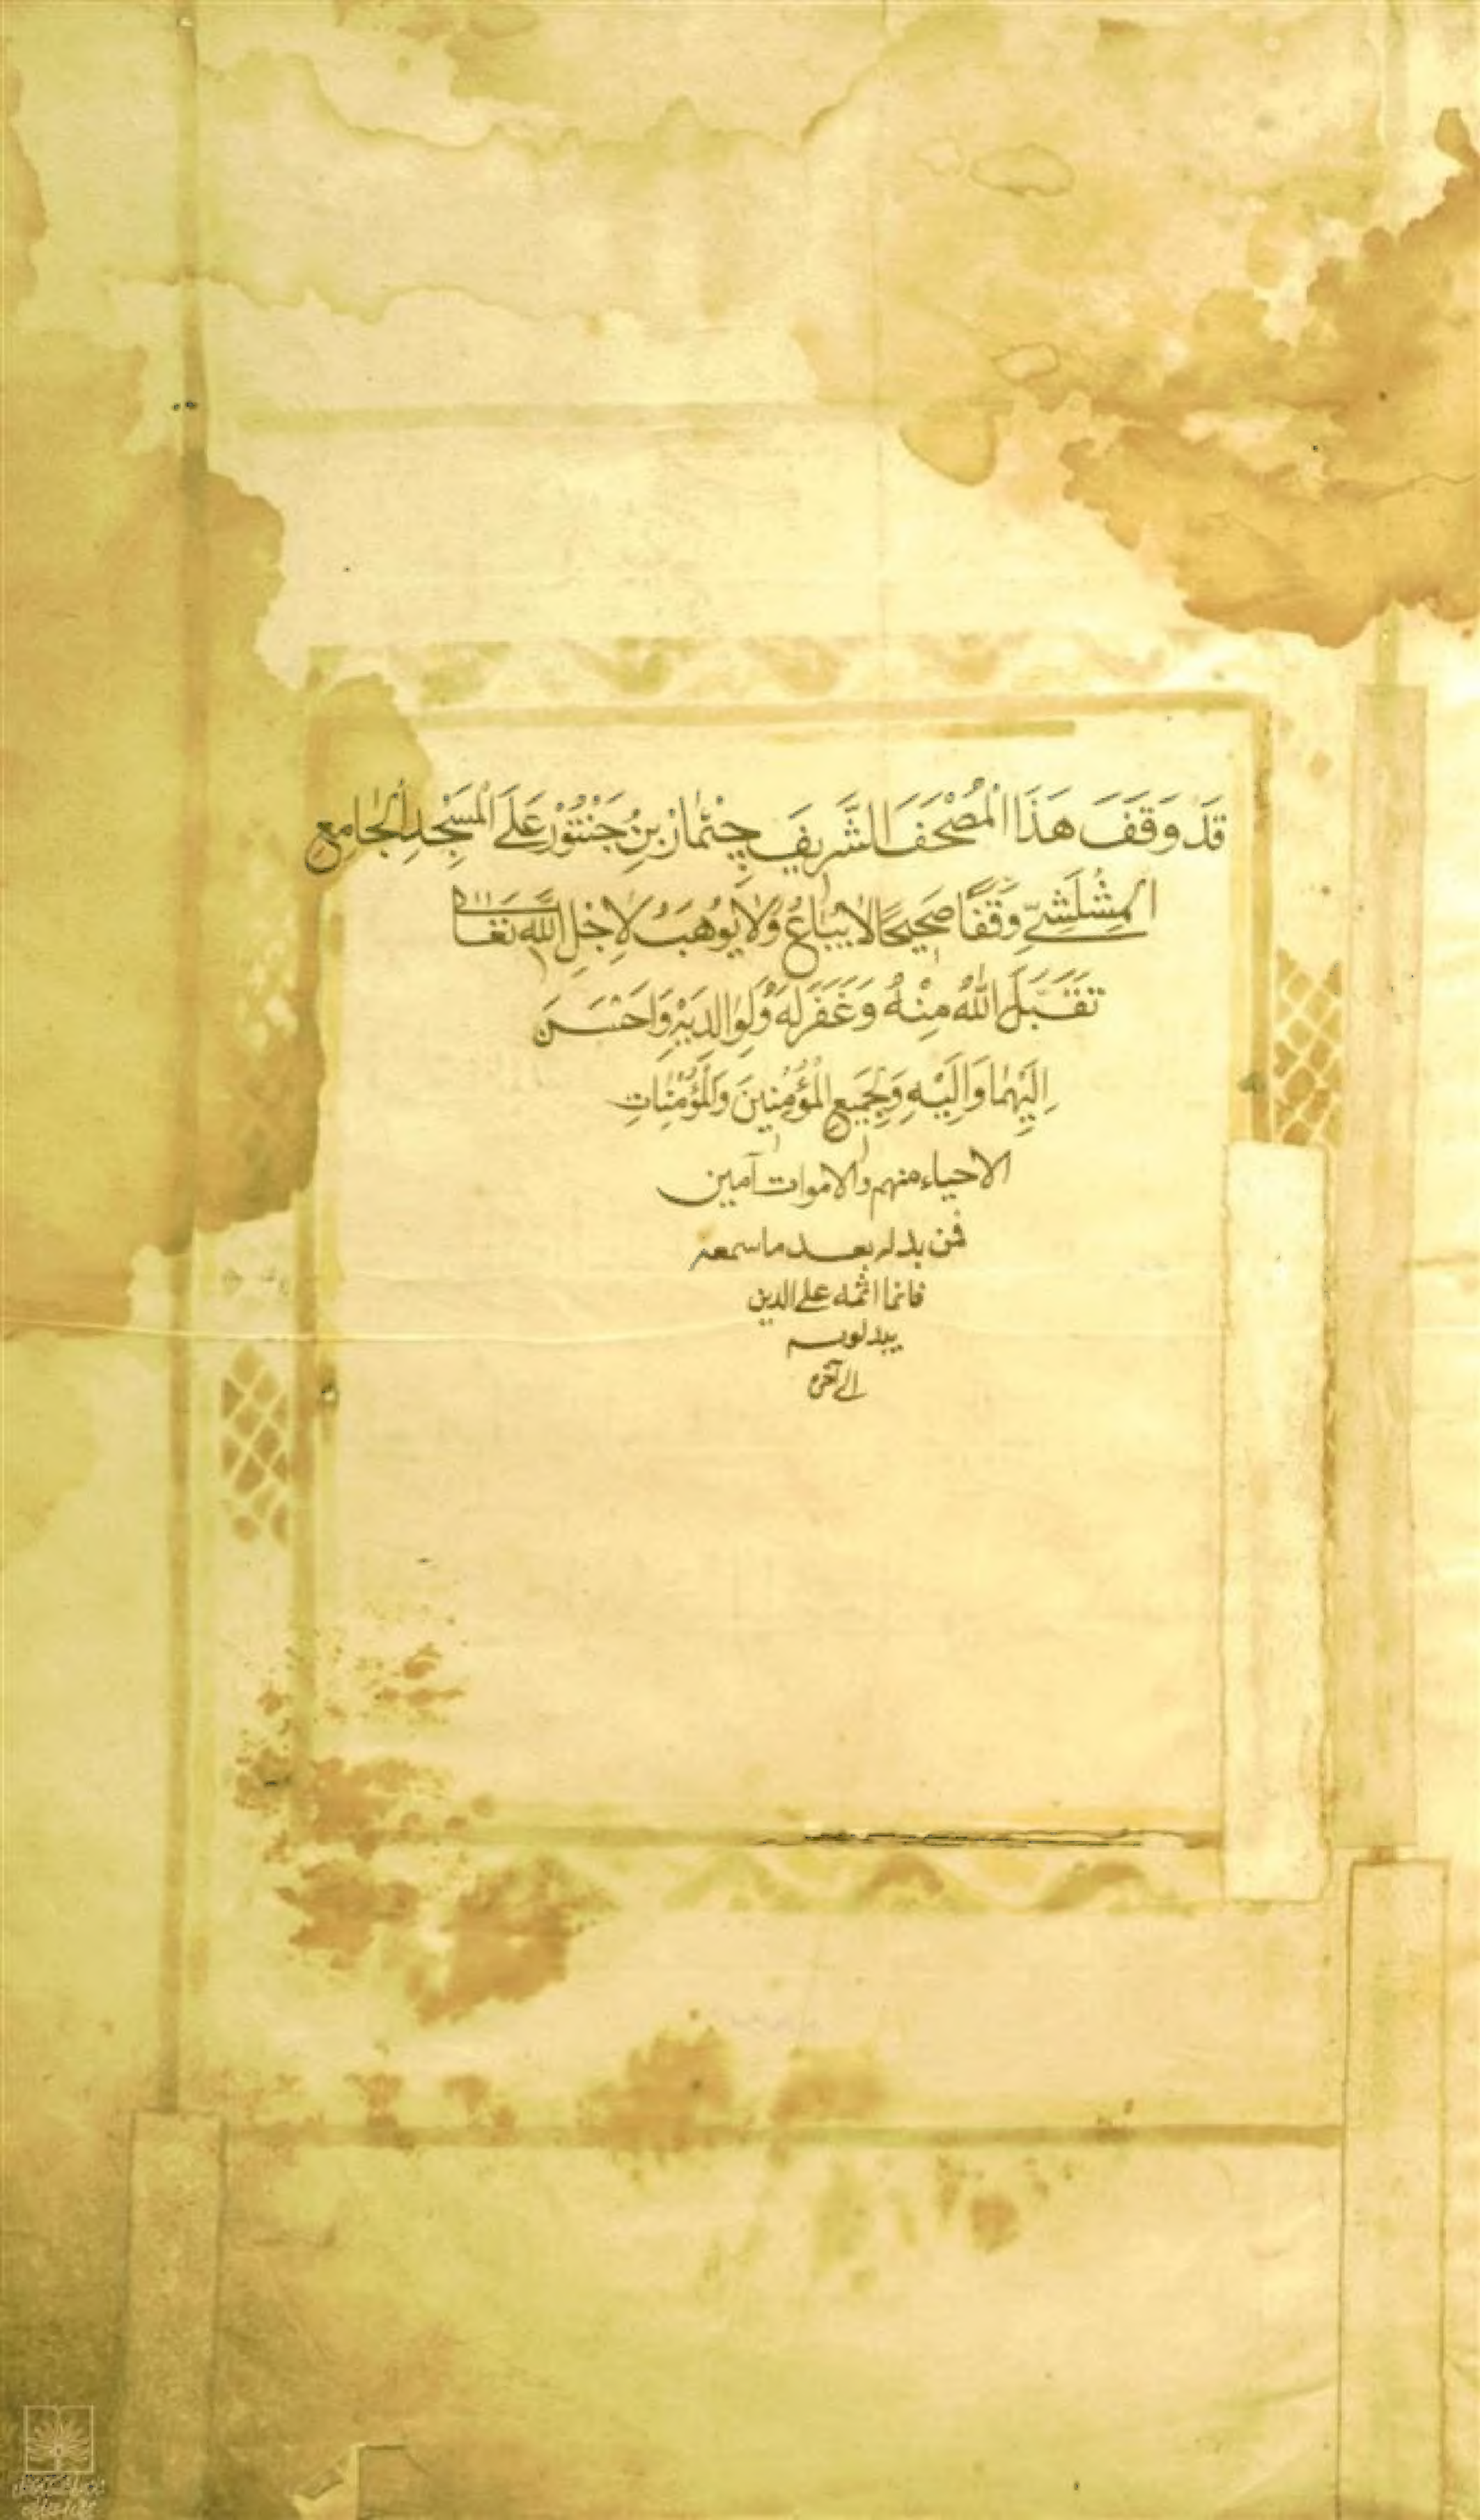 قَدْ وَقَفَ هَذَا الْمُصْحَفَ الشَّرِيفَ چِنْثمَازْ بنُ جَنْتُورْ عَلَى الْمَسْجِدِ الْجَامِعِ
المِشْلَشِيِّ وَقْفًا صَحِيحًا لَا يُبَاعُ وَلَا يُوهَبُ لِاَجْلِ اللَّهِ تَعَالَى
تَقَبَّلَ اللّٰهُ مِنْهُ وَغَفَرَ لَهُ وَلِوَالِدَيْهِ وَاَحْسَنَ
اِلَيْهِمَا وَاِلَيْهِ وَلِجَمِيعِ الْمُؤْمِنِينَ وَالْمُؤْمِنَاتِ
الاحياء منهم والاموات آمين
فمن بدله بعد ما سمعه
فانما اثمه على الذين
يبدلونه
الى آخره